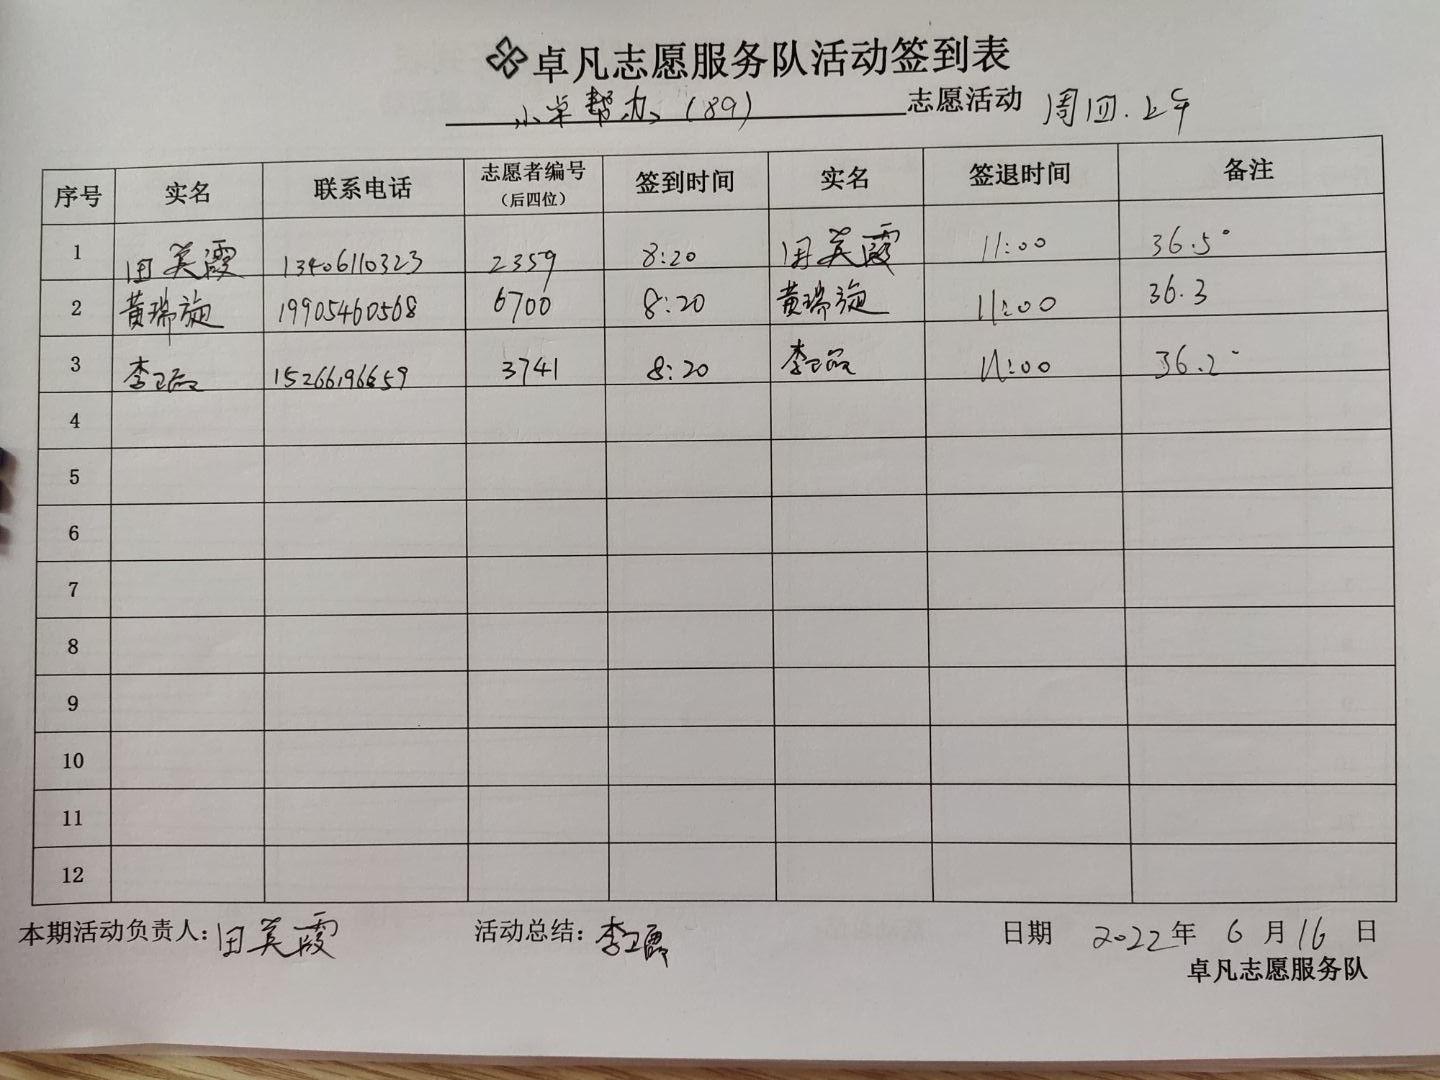 卓凡志愿服务队活动签到表
小卓帮办(89) 志愿活动 周四.上午
序号 实名 联系电话 志愿者编号(后四位) 签到时间 实名 签退时间 备注
1 田英霞 13406110323 2359 8:20 田英霞 11:00 36.5°
2 黄瑞旋 19905460568 6700 8:20 黄瑞旋 11:00 36.3
3 李 15266196659 3741 8:20 李 11:00 36.2°
4
5
6
7
8
9
10
11
12
本期活动负责人:田英霞 活动总结:李 日期 2022年 6 月 16 日
卓凡志愿服务队